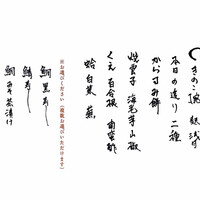 きのこ椀 銀浅
本日の造り 二種
からすみ餅
焼雲子 海老芋 山椒
くえ 百合根 菊花酢
蛤 白菜 蕪
※お選びください(複数お選びいただけます)
鯛黒寿し
鯖寿し
鯛みそ茶漬け